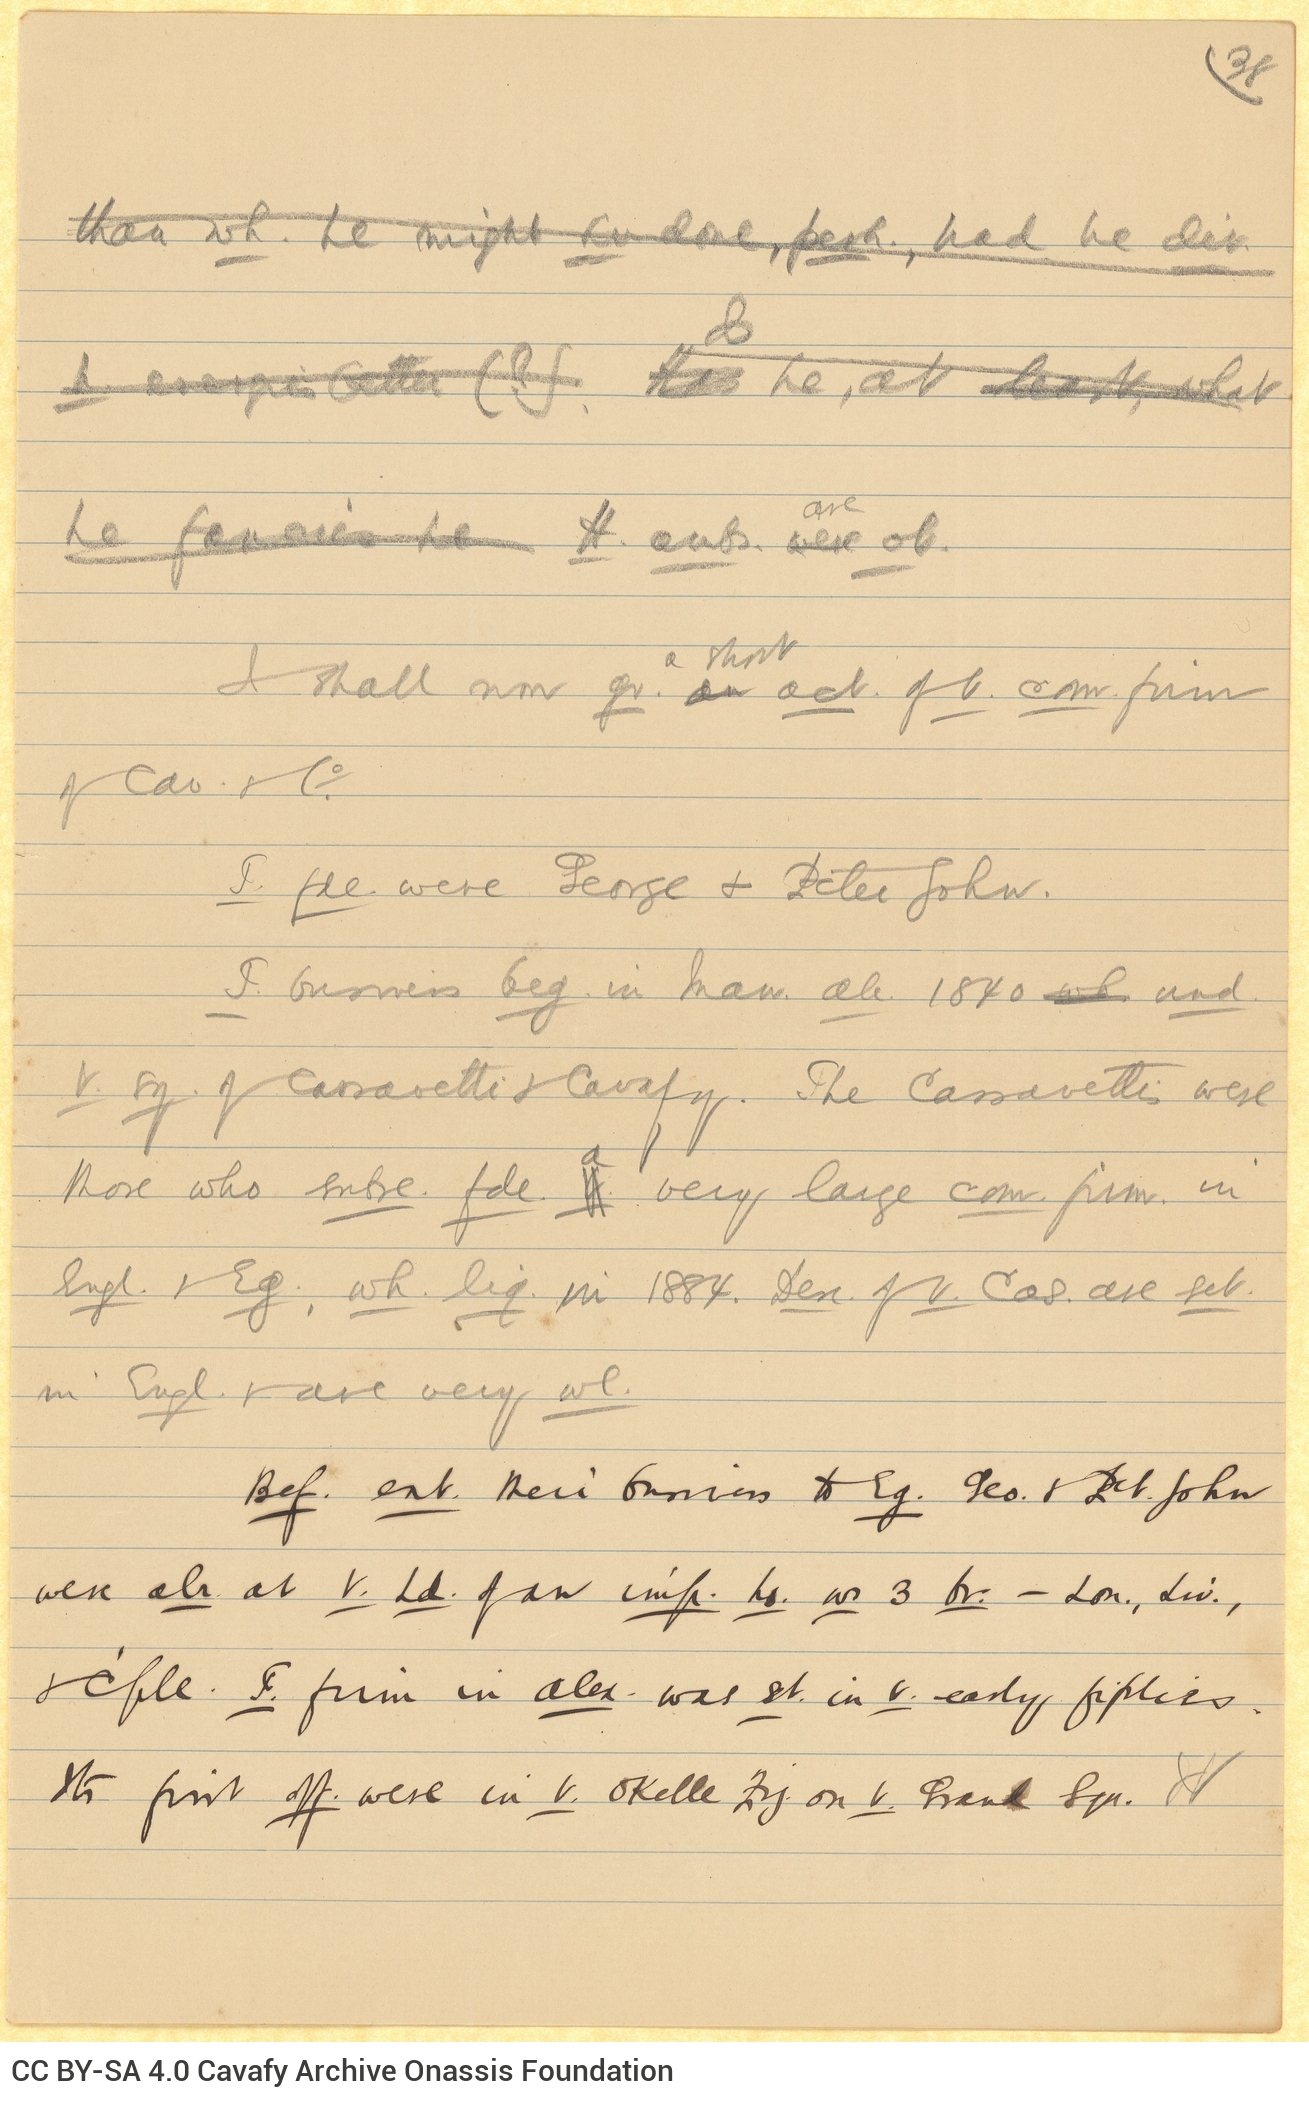 (38
than wh. he might hv done, perh., had he dir.
h. energies better (?). Has he, at least, what
do
he fancies he H. ants. were ob.
are
I shall now gv. an act. of t. com. firm
a short
of Cav. & Co.
T. fde. were George & Peter John.
T. business beg. in Man. ab. 1840 wh und.
t. sg. of Cassavetti & Cavafy. The Cassavettis were
those who subse. fde. a very large com. firm. in
Engl. & Eg., wh. liq. in 1884. Des. of t. Cas. are set.
in Engl. & are very wl.
Bef. ext. their business to Eg. Geo. & Pet. John
were alr. at t. hd. of an imp. ho. w 3 br. – Lon., Liv.,
& C'ple. T. firm in Alex. was st. in t. early fifties.
Its first off. were in t. Okelle Ziz. on t. Grand Squ.